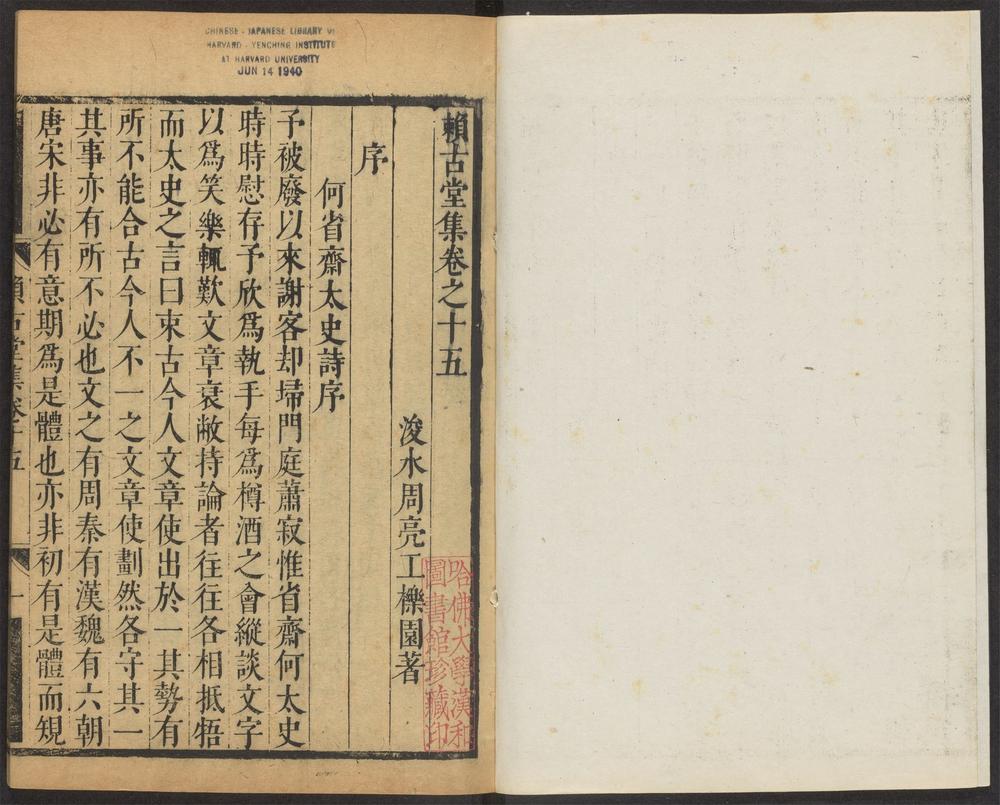 CHINESE - JAPANESE LIBRARY
HARVARD - YENCHING INSTITUTE
AT HARVARD UNIVERSITY
JUN 14 1940
賴古堂集卷之十五
浚水周亮工櫟園著
序
何省齋太史詩序
予被廢以來謝客却埽門庭蕭寂惟省齋何太史
時時慰存予欣爲執手每爲樽酒之會縱談文字
以爲笑樂輒歎文章衰敝持論者往往各相抵牾
而太史之言曰束古今人文章使出於一其勢有
所不能合古今人不一之文章使劃然各守其一
其事亦有所不必也文之有周秦有漢魏有六朝
唐宋非必有意期爲是體也亦非初有是體而規
賴古堂集卷十五
一
哈佛大學漢和
圖書館珍藏印